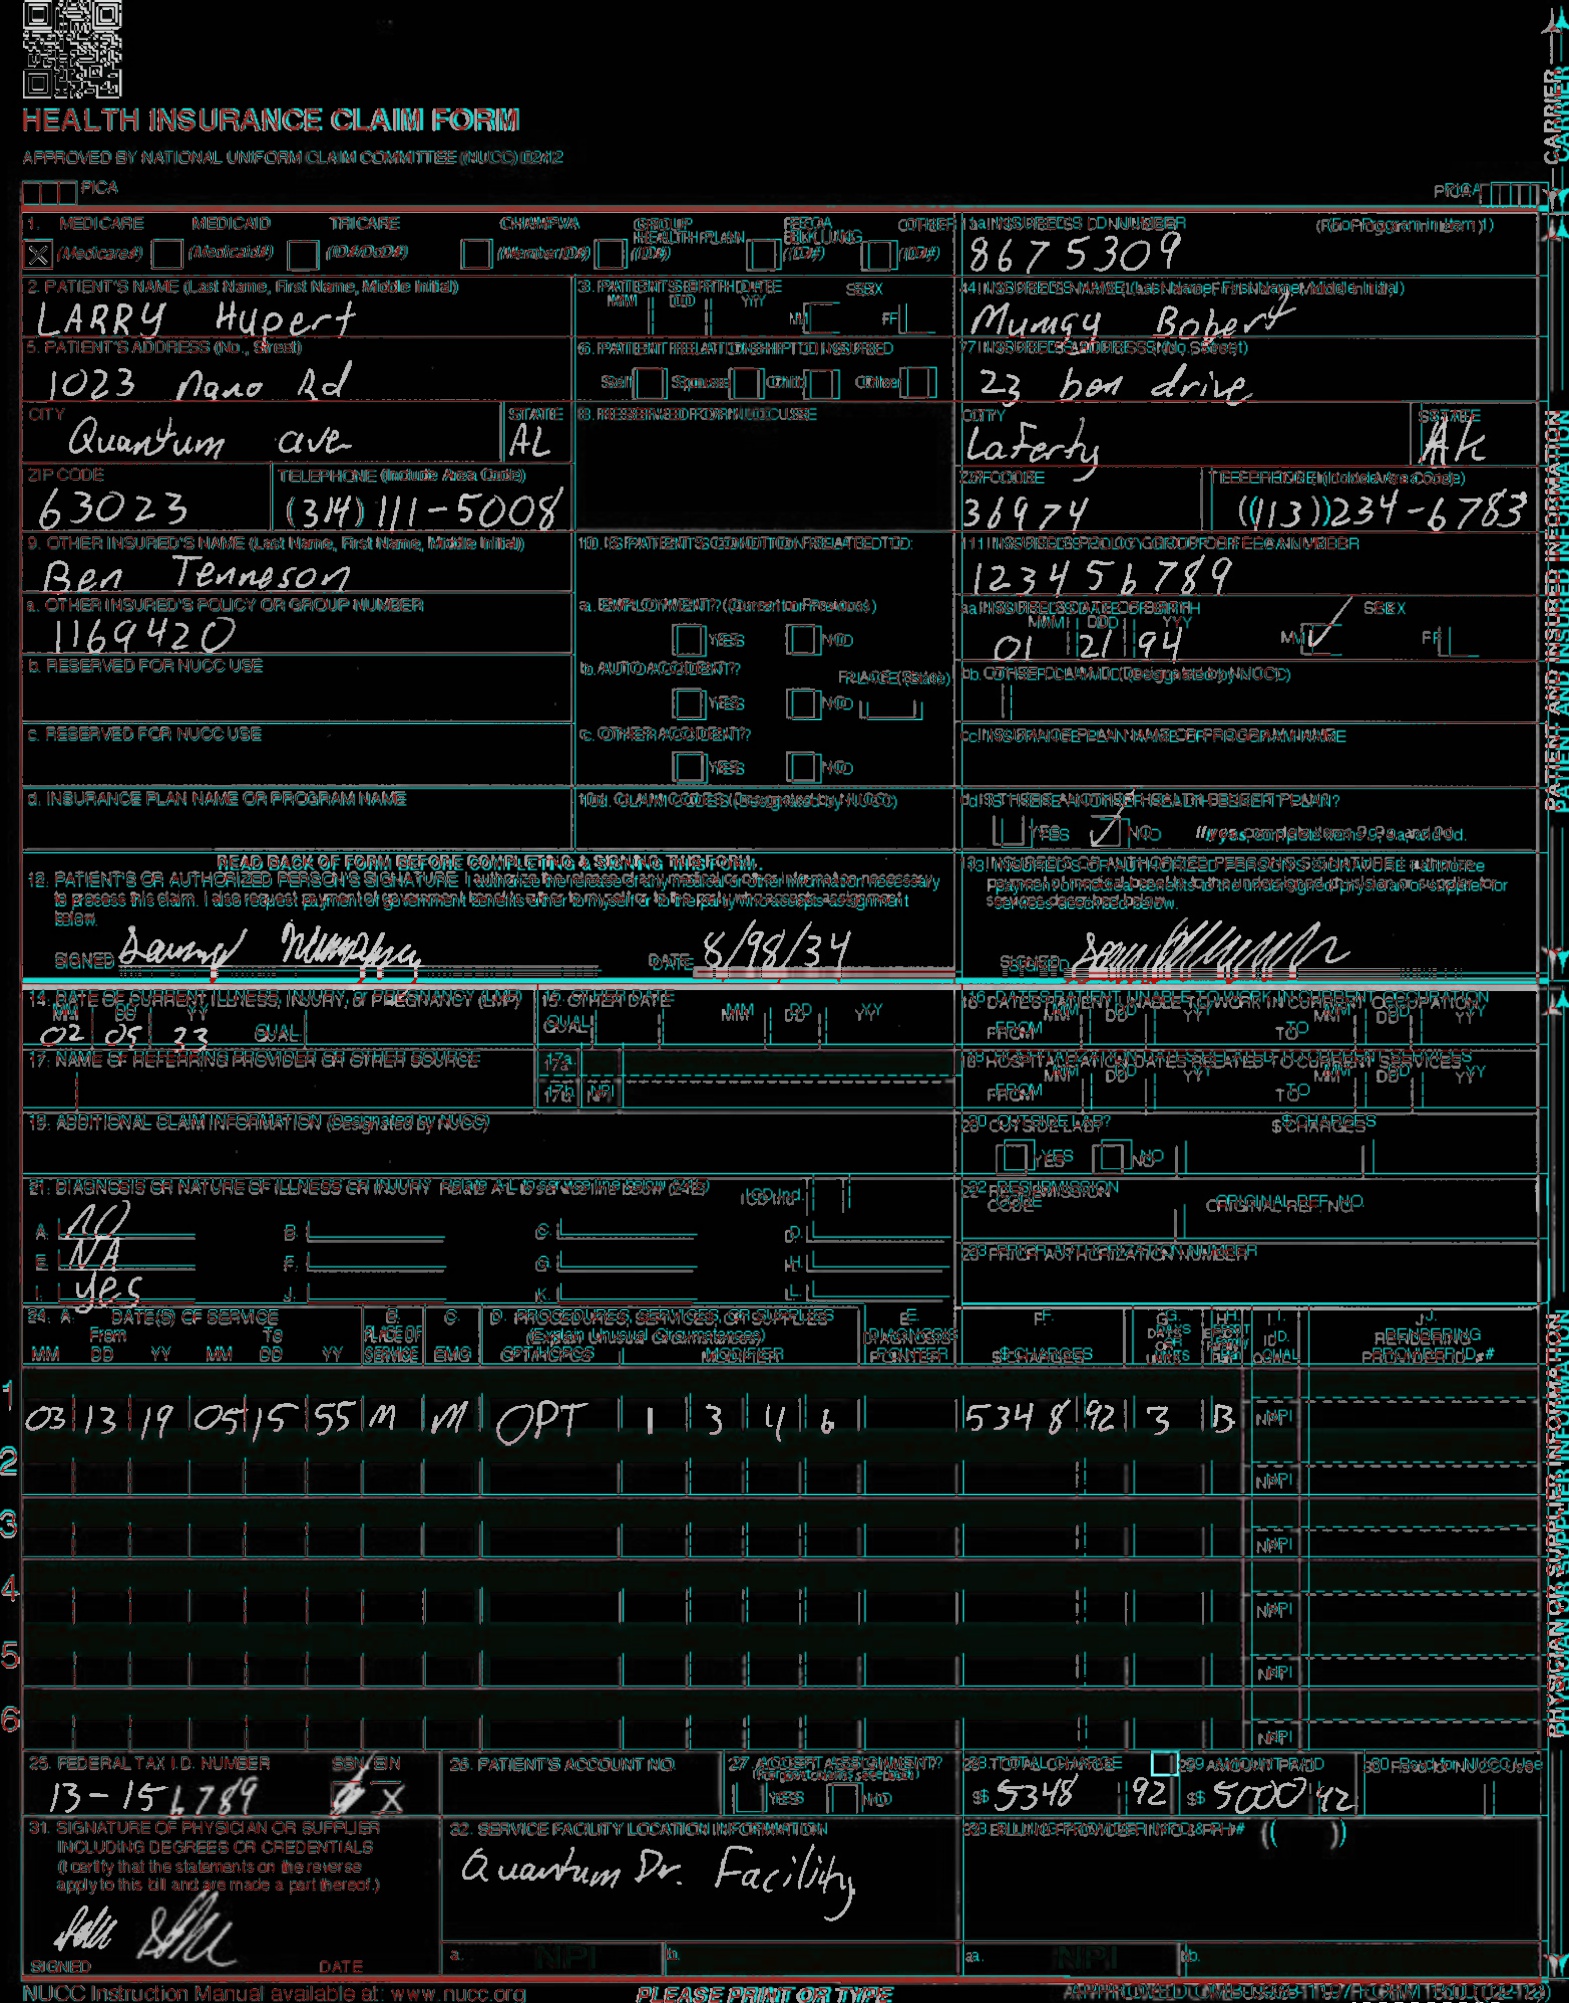 HEALTH INSURANCE CLAIM FORM
APPROVED BY NATIONAL UNIFORM CLAIM COMMITTEE (NUCC) 02/12
CARRIER
PICA
PICA
1. MEDICARE MEDICAID TRICARE CHAMPVA GROUP HEALTH PLAN FECA BLK LUNG OTHER
X (Medicare#) (Medicaid#) (ID#/DoD#) (Member ID#) (ID#) (ID#) (ID#)
1a. INSURED'S I.D. NUMBER (For Program in Item 1)
8675309
2. PATIENT'S NAME (Last Name, First Name, Middle Initial)
LARRY Hupert
3. PATIENT'S BIRTH DATE SEX
MM DD YY M F
4. INSURED'S NAME (Last Name, First Name, Middle Initial)
Bobert
5. PATIENT'S ADDRESS (No., Street)
1023 nano Rd
6. PATIENT RELATIONSHIP TO INSURED
Self Spouse Child Other
7. INSURED'S ADDRESS (No., Street)
23 ben drive
CITY STATE
Quantum ave AL
8. RESERVED FOR NUCC USE
CITY STATE
Laferty AK
ZIP CODE TELEPHONE (Include Area Code)
63023 (314) 111-5008
ZIP CODE TELEPHONE (Include Area Code)
36974 (113)234-6783
9. OTHER INSURED'S NAME (Last Name, First Name, Middle Initial)
Ben Tenneson
10. IS PATIENT'S CONDITION RELATED TO:
11. INSURED'S POLICY GROUP OR FECA NUMBER
123456789
a. OTHER INSURED'S POLICY OR GROUP NUMBER
1169420
a. EMPLOYMENT? (Current or Previous)
YES NO
a. INSURED'S DATE OF BIRTH SEX
MM DD YY M F
01 21 94
b. RESERVED FOR NUCC USE
b. AUTO ACCIDENT? PLACE (State)
YES NO
b. OTHER CLAIM ID (Designated by NUCC)
c. RESERVED FOR NUCC USE
c. OTHER ACCIDENT?
YES NO
c. INSURANCE PLAN NAME OR PROGRAM NAME
d. INSURANCE PLAN NAME OR PROGRAM NAME
10d. CLAIM CODES (Designated by NUCC)
d. IS THERE ANOTHER HEALTH BENEFIT PLAN?
YES NO If yes, complete items 9, 9a, and 9d.
READ BACK OF FORM BEFORE COMPLETING & SIGNING THIS FORM.
12. PATIENT'S OR AUTHORIZED PERSON'S SIGNATURE I authorize the release of any medical or other information necessary
to process this claim. I also request payment of government benefits either to myself or to the party who accepts assignment
below.
SIGNED DATE 8/98/34
13. INSURED'S OR AUTHORIZED PERSON'S SIGNATURE I authorize
payment of medical benefits to the undersigned physician or supplier for
services described below.
SIGNED
PATIENT AND INSURED INFORMATION
14. DATE OF CURRENT ILLNESS, INJURY, or PREGNANCY (LMP)
MM DD YY
02 05 23 QUAL.
15. OTHER DATE
QUAL. MM DD YY
16. DATES PATIENT UNABLE TO WORK IN CURRENT OCCUPATION
MM DD YY MM DD YY
FROM TO
17. NAME OF REFERRING PROVIDER OR OTHER SOURCE
17a.
17b. NPI
18. HOSPITALIZATION DATES RELATED TO CURRENT SERVICES
MM DD YY MM DD YY
FROM TO
19. ADDITIONAL CLAIM INFORMATION (Designated by NUCC)
20. OUTSIDE LAB? $ CHARGES
YES NO
21. DIAGNOSIS OR NATURE OF ILLNESS OR INJURY Relate A-L to service line below (24E) ICD Ind.
A. NO B. C. D.
E. NA F. G. H.
I. yes J. K. L.
22. RESUBMISSION CODE ORIGINAL REF. NO.
23. PRIOR AUTHORIZATION NUMBER
24. A. DATE(S) OF SERVICE B. C. D. PROCEDURES, SERVICES, OR SUPPLIES E. F. G. H. I. J.
From To PLACE OF SERVICE EMG (Explain Unusual Circumstances) DIAGNOSIS POINTER $ CHARGES DAYS OR UNITS EPSDT Family Plan ID. QUAL. RENDERING PROVIDER ID. #
MM DD YY MM DD YY CPT/HCPCS MODIFIER
1 03 13 19 05 15 55 M M OPT 1 3 4 6 5348 92 3 B NPI
2 NPI
3 NPI
4 NPI
5 NPI
6 NPI
PHYSICIAN OR SUPPLIER INFORMATION
25. FEDERAL TAX I.D. NUMBER SSN EIN
13-156789 X
26. PATIENT'S ACCOUNT NO.
27. ACCEPT ASSIGNMENT?
(For govt. claims, see back)
YES NO
28. TOTAL CHARGE
$ 5348 92
29. AMOUNT PAID
$ 5000 42
30. Rsvd for NUCC Use
31. SIGNATURE OF PHYSICIAN OR SUPPLIER
INCLUDING DEGREES OR CREDENTIALS
(I certify that the statements on the reverse
apply to this bill and are made a part thereof.)
SIGNED DATE
32. SERVICE FACILITY LOCATION INFORMATION
Quantum Dr. Facility
a. NPI b.
33. BILLING PROVIDER INFO & PH # ( )
a. NPI b.
NUCC Instruction Manual available at: www.nucc.org
PLEASE PRINT OR TYPE
APPROVED OMB-0938-1197 FORM 1500 (02-12)